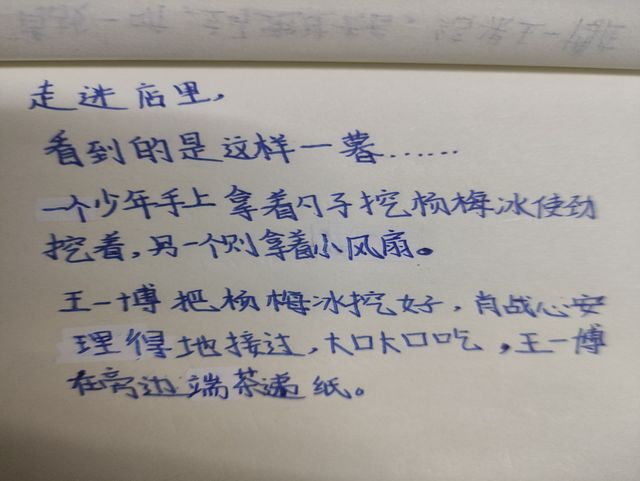 走进店里，
看到的是这样一暮……
一个少年手上拿着勺子挖杨梅冰使劲
挖着，另一个则拿着小风扇。
王一博把杨梅冰挖好，肖战心安
理得地接过，大口大口吃，王一博
在旁边端茶递纸。